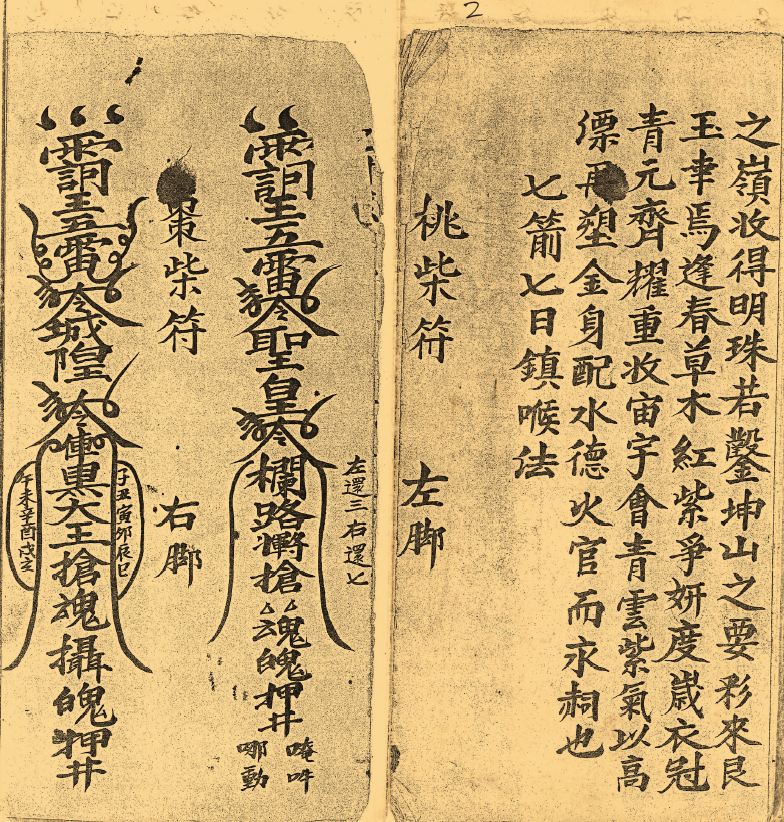 2
之嶺收得明珠若鑿坤山之要彩來艮
玉幸焉逢春草木紅紫爭妍度歲衣冠
青元齊耀重收宙宇會青雲紫氣以高
僄再塑金身配水德火官而永祠也
七箭七日鎮喉法
桃柴符 左脚
左還三右還七
王五雷
聖皇
欄路 搶
魂魄押井
唵吽
哪動
棗柴符 右脚
王五雷
城隍
子丑寅卯辰巳
大王搶魂攝魄押井
午未辛酉戌亥